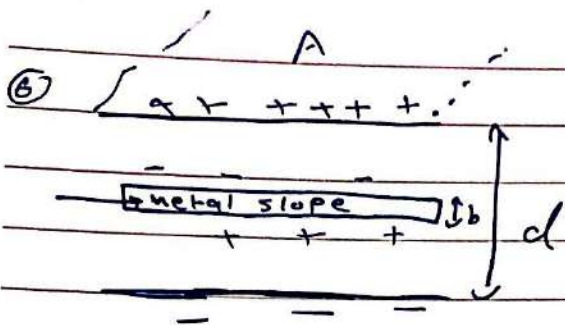 A
⑧ + + + + + +
- - -
metal slope b
+ + + d
- - -